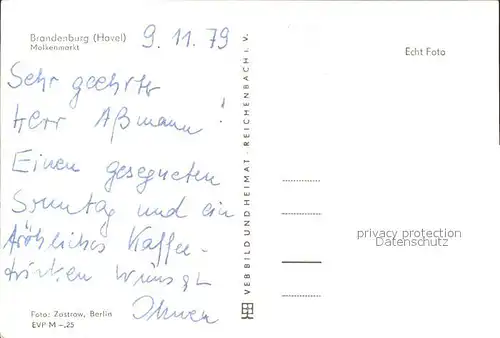 Brandenburg (Havel)
Molkenmarkt
9.11.79
Sehr geehrter
Herr Aßmann!
Einen gesegneten
Sonntag und ein
fröhliches Kaffee-
trinken wünscht
Ihnen
Foto: Zastrow, Berlin
EVP M -,25
VEB BILD UND HEIMAT · REICHENBACH i. V.
Echt Foto
privacy protection
Datenschutz